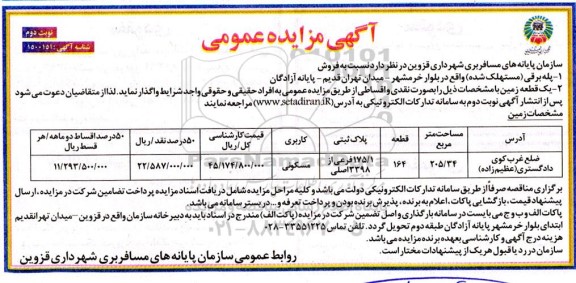 آگهی مزایده عمومی
نوبت دوم
شناسه آگهی: ۱۵۰۰۱۵۱
سازمان پایانه های مسافربری شهرداری قزوین در نظر دارد نسبت به فروش
۱-پله برقی (مستهلک شده) واقع در بلوار خرمشهر - میدان تهران قدیم - پایانه آزادگان
۲-یک قطعه زمین با مشخصات ذیل را بصورت نقدی و اقساطی از طریق مزایده عمومی به افراد حقیقی و حقوقی واجد شرایط واگذار نماید. لذا از متقاضیان دعوت می شود
پس از انتشار آگهی نوبت دوم به سامانه تدارکات الکترونیکی به آدرس (www.setadiran.iR) مراجعه نمایند
مشخصات زمین
آدرس مساحت متر مربع قطعه پلاک ثبتی کاربری قیمت کارشناسی کل/ریال ۵۰درصد نقد/ریال ۵۰درصد اقساط دو ماهه/هر قسط ریال
ضلع غرب کوی دادگستری(عظیم زاده) ۲۰۵/۳۴ ۱۶۴ ۱۷۵/۱فرعی از ۳۳۹۸اصلی مسکونی ۴۵/۱۷۴/۸۰۰/۰۰۰ ۲۲/۵۸۷/۰۰۰/۰۰۰ ۱۱/۲۹۳/۵۰۰/۰۰۰
برگزاری مناقصه صرفاً از طریق سامانه تدارکات الکترونیکی دولت می باشد و کلیه مراحل مزایده شامل دریافت اسناد مزایده پرداخت تضامین شرکت در مزایده، ارسال
پیشنهاد قیمت، بازگشایی پاکات، اعلام به برنده، پذیرش برنده بودن و پرداخت تعرفه و... در بستر سامانه می باشد.
پاکات الف و ب و ج می بایست در سامانه بارگذاری و اصل تضمین شرکت در مزایده (پاکت الف) مندرج در اسناد باید به دبیرخانه سازمان واقع در قزوین-میدان تهرانقدیم
ابتدای بلوار خرمشهر پایانه آزادگان طبقه دوم تحویل گردد. تلفن تماس ۳۳۵۵۱۲۲۵-۰۲۸
هزینه درج آگهی و کارشناسی بعهده برنده مزایده می باشد.
سازمان در رد یا قبول هر یک از پیشنهادات مختار است.
روابط عمومی سازمان پایانه های مسافربری شهرداری قزوین